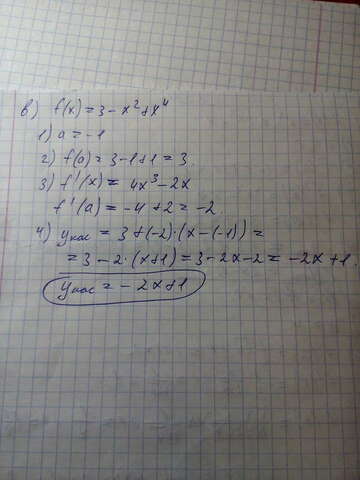 в) f(x) = 3 - x² + x⁴
1) a = -1
2) f(a) = 3 - 1 + 1 = 3
3) f'(x) = 4x³ - 2x
f'(a) = -4 + 2 = -2
4) yкас = 3 + (-2)·(x - (-1)) =
= 3 - 2·(x + 1) = 3 - 2x - 2 = -2x + 1.
yкас = -2x + 1